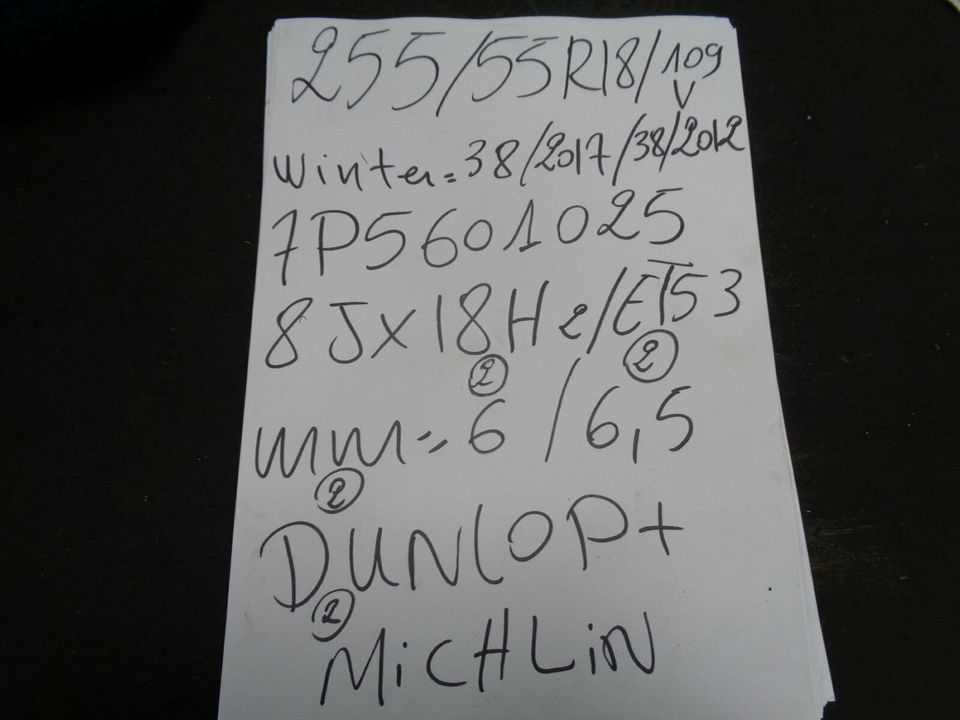 255/55R18/109
V
Winter=38/2017/38/2012
7P5601025
8Jx18H2/ET53
② ②
mm=6/6,5
② DUNLOP+
② MiCHLiN